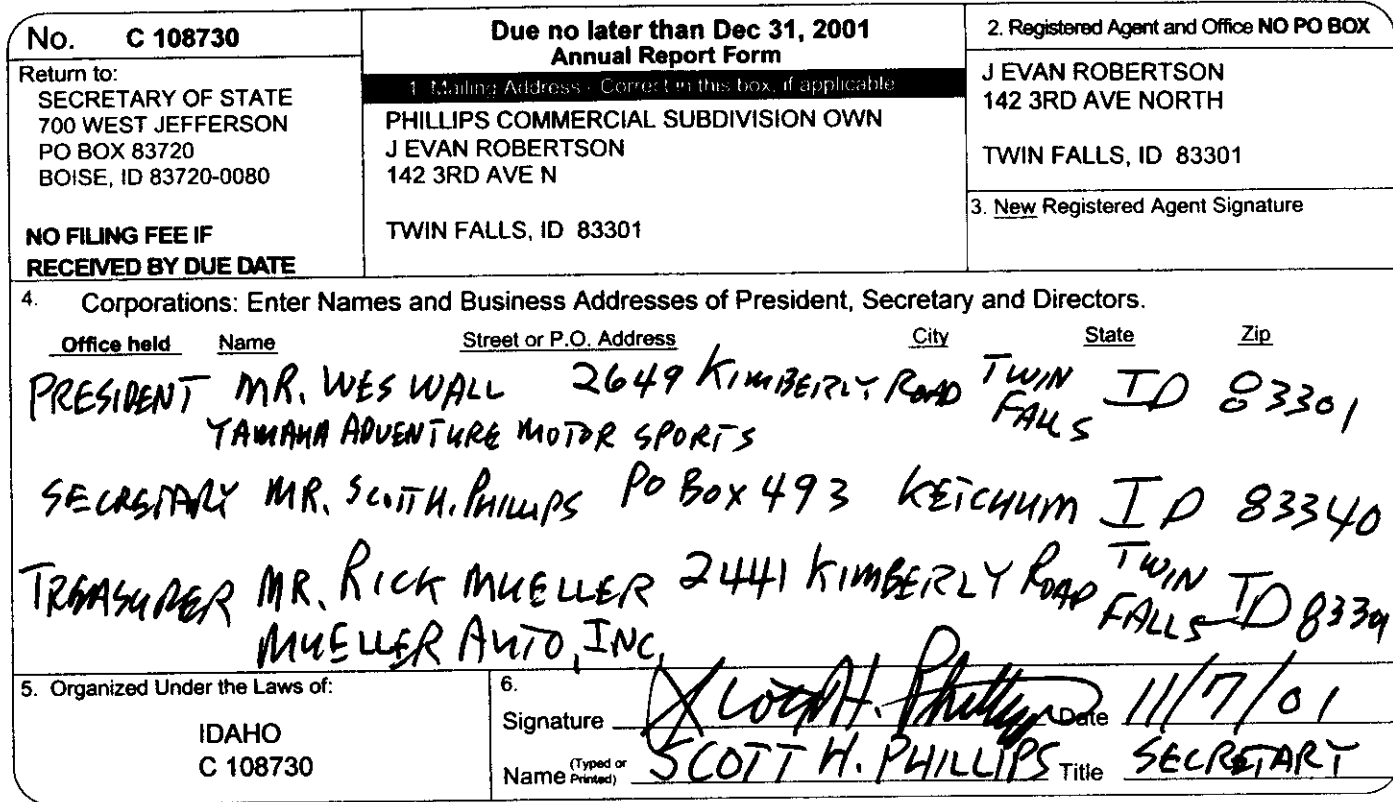 No. C 108730
Return to:
SECRETARY OF STATE
700 WEST JEFFERSON
PO BOX 83720
BOISE, ID 83720-0080
NO FILING FEE IF
RECEIVED BY DUE DATE
Due no later than Dec 31, 2001
Annual Report Form
1. Mailing Address - Correct in this box, if applicable
PHILLIPS COMMERCIAL SUBDIVISION OWN
J EVAN ROBERTSON
142 3RD AVE N
TWIN FALLS, ID 83301
2. Registered Agent and Office NO PO BOX
J EVAN ROBERTSON
142 3RD AVE NORTH
TWIN FALLS, ID 83301
3. New Registered Agent Signature
4. Corporations: Enter Names and Business Addresses of President, Secretary and Directors.
Office held Name Street or P.O. Address City State Zip
PRESIDENT MR. WES WALL 2649 KIMBERLY ROAD TWIN FALLS ID 83301
YAMAHA ADVENTURE MOTOR SPORTS
SECRETARY MR. SCOTT H. PHILLIPS PO BOX 493 KETCHUM ID 83340
TREASURER MR. RICK MUELLER 2441 KIMBERLY ROAD TWIN FALLS ID 83301
MUELLER AUTO, INC.
5. Organized Under the Laws of:
IDAHO
C 108730
6.
Signature Scott H. Phillips Date 11/7/01
Name (Typed or Printed) SCOTT H. PHILLIPS Title SECRETARY